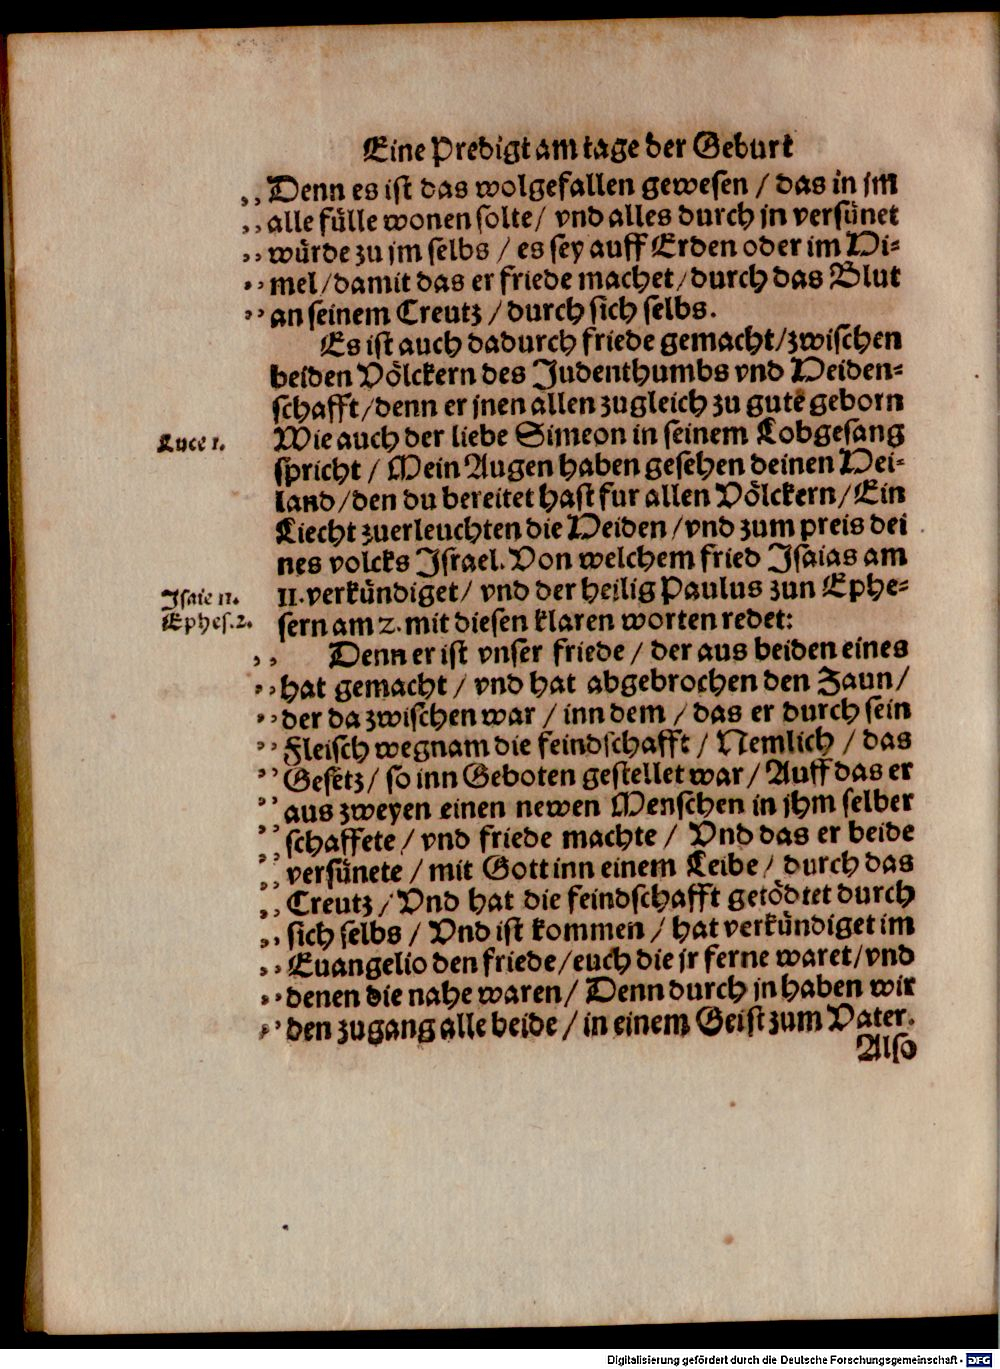 Eine Predigt am tage der Geburt
,, Denn es ist das wolgefallen gewesen / das in jm
,, alle fülle wonen solte / vnd alles durch jn versünet
,, würde zu jm selbs / es sey auff Erden oder im Hi-
,, mel / damit das er friede machet / durch das Blut
,, an seinem Creutz / durch sich selbs.
Es ist auch dadurch friede gemacht / zwischen
beiden Völckern des Judenthumbs vnd Heiden-
schafft / denn er jnen allen zugleich zu gute geborn
Luce 1. Wie auch der liebe Simeon in seinem Lobgesang
spricht / Mein Augen haben gesehen deinen Hei-
land / den du bereitet hast fur allen Völckern / Ein
Liecht zuerleuchten die Heiden / vnd zum preis dei
nes volcks Israel. Von welchem fried Isaias am
Isaie 11. 11. verkündiget / vnd der heilig Paulus zun Ephe-
Ephes. 2. sern am 2. mit diesen klaren worten redet:
,, Denn er ist vnser friede / der aus beiden eines
,, hat gemacht / vnd hat abgebrochen den Zaun /
,, der da zwischen war / inn dem / das er durch sein
,, Fleisch wegnam die feindschafft / Nemlich / das
,, Gesetz / so inn Geboten gestellet war / Auff das er
,, aus zweyen einen newen Menschen in jhm selber
,, schaffete / vnd friede machte / Vnd das er beide
,, versünete / mit Gott inn einem Leibe / durch das
,, Creutz / Vnd hat die feindschafft getödtet durch
,, sich selbs / Vnd ist kommen / hat verkündiget im
,, Euangelio den friede / euch die jr ferne waret / vnd
,, denen die nahe waren / Denn durch jn haben wir
,, den zugang alle beide / in einem Geist zum Vater.
Also
Digitalisierung gefördert durch die Deutsche Forschungsgemeinschaft - DFG